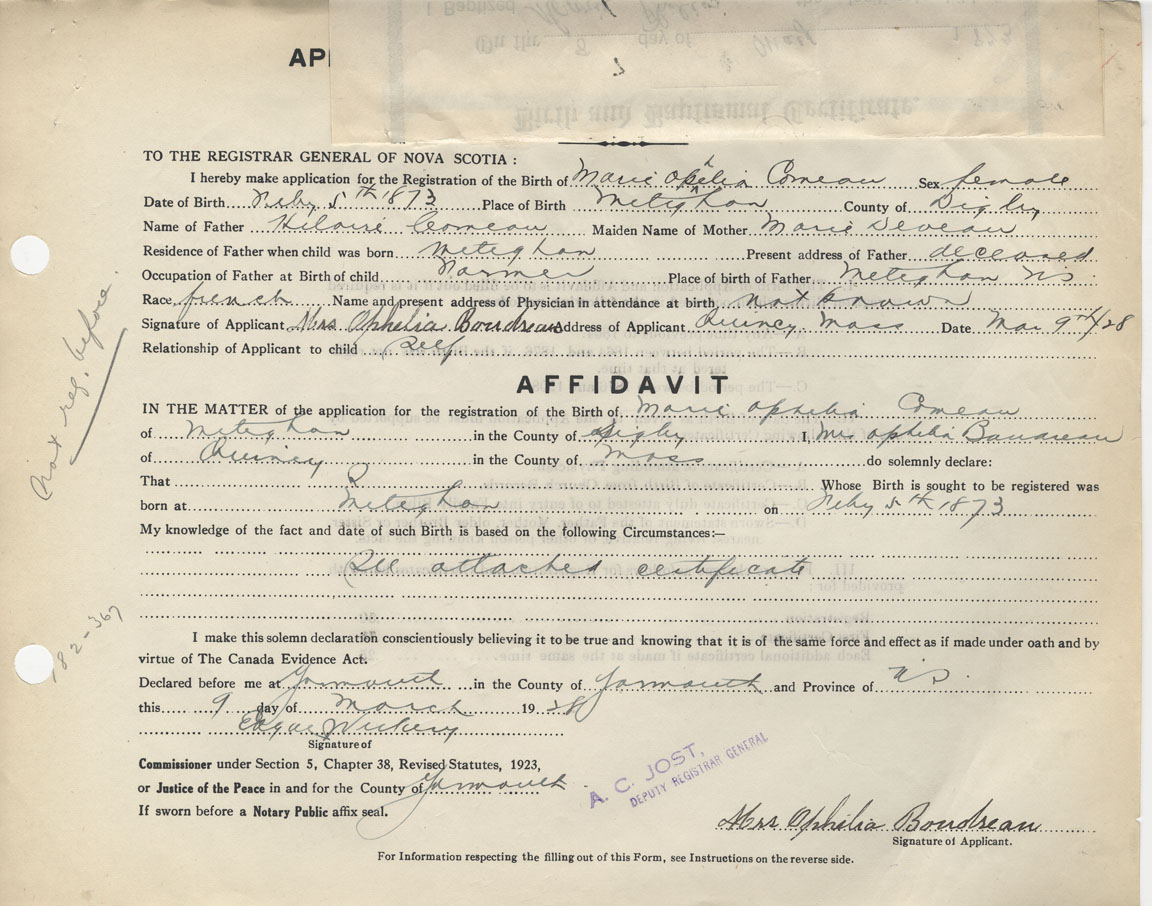 Birth and Baptismal Certificate.
On the 8 day of May 1873
I Baptized
API
TO THE REGISTRAR GENERAL OF NOVA SCOTIA :
I hereby make application for the Registration of the Birth of Marie Ophelia Comeau Sex female
Date of Birth Feby 5th 1873 Place of Birth Meteghan County of Digby
Name of Father Hilaire Comeau Maiden Name of Mother Marie Deveau
Residence of Father when child was born Meteghan Present address of Father deceased
Occupation of Father at Birth of child Farmer Place of birth of Father Meteghan NS
Race, french Name and present address of Physician in attendance at birth, not known
Signature of Applicant Mrs Ophelia Boudreau Address of Applicant Quincy Mass Date Mar 9th/28
Relationship of Applicant to child Self
AFFIDAVIT
IN THE MATTER of the application for the registration of the Birth of Marie Ophelia Comeau
of Meteghan in the County of Digby I, Mrs Ophelia Boudreau
of Quincy in the County of Mass do solemnly declare:
That Whose Birth is sought to be registered was
born at Meteghan on Feby 5th 1873
My knowledge of the fact and date of such Birth is based on the following Circumstances:—
See attached certificate
I make this solemn declaration conscientiously believing it to be true and knowing that it is of the same force and effect as if made under oath and by
virtue of The Canada Evidence Act.
Declared before me at Yarmouth in the County of Yarmouth and Province of NS.
this 9 day of March 1928
Edgar
Signature of
Commissioner under Section 5, Chapter 38, Revised Statutes, 1923,
or Justice of the Peace in and for the County of Yarmouth
If sworn before a Notary Public affix seal.
A. C. JOST,
DEPUTY REGISTRAR GENERAL
Mrs Ophelia Boudreau
Signature of Applicant.
For Information respecting the filling out of this Form, see Instructions on the reverse side.
Not reg. before
182-367